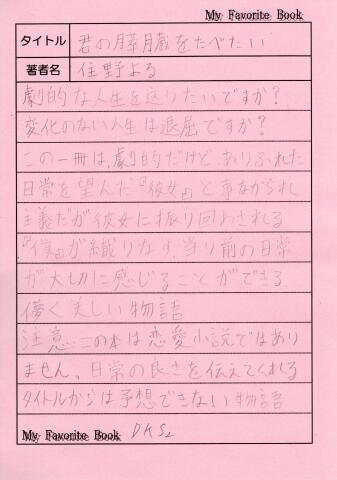 My Favorite Book
タイトル 君の膵臓をたべたい
著者名 住野よる
劇的な人生を送りたいですか?
変化のない人生は退屈ですか?
この一冊は、劇的だけど、ありふれた
日常を望んだ『彼女』と事ながられ
主義だが彼女に振り回わされる
『僕』が織りなす、当り前の日常
が大切に感じることができる、
儚く美しい物語
注意 この本は恋愛小説ではあり
ません。日常の良さを伝えてくれる
タイトルからは予想できない物語
My Favorite Book DKS2